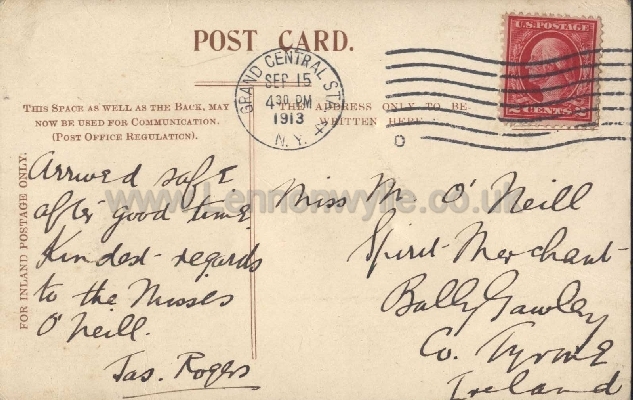 POST CARD.
GRAND CENTRAL STA.
SEP 15
4 30 PM
1913
N.Y.
U.S. POSTAGE
2 CENTS 2
THIS SPACE AS WELL AS THE BACK, MAY
NOW BE USED FOR COMMUNICATION.
(POST OFFICE REGULATION).
THE ADDRESS ONLY TO BE
WRITTEN HERE
FOR INLAND POSTAGE ONLY.
Arrived safe
after good time
Kindest regards
to the Misses
O'Neill.
Jas. Rogers
Miss M. O'Neill
Spirit Merchant
BallyGawley
Co. Tyrone
Ireland
www.Lennonwylie.co.uk